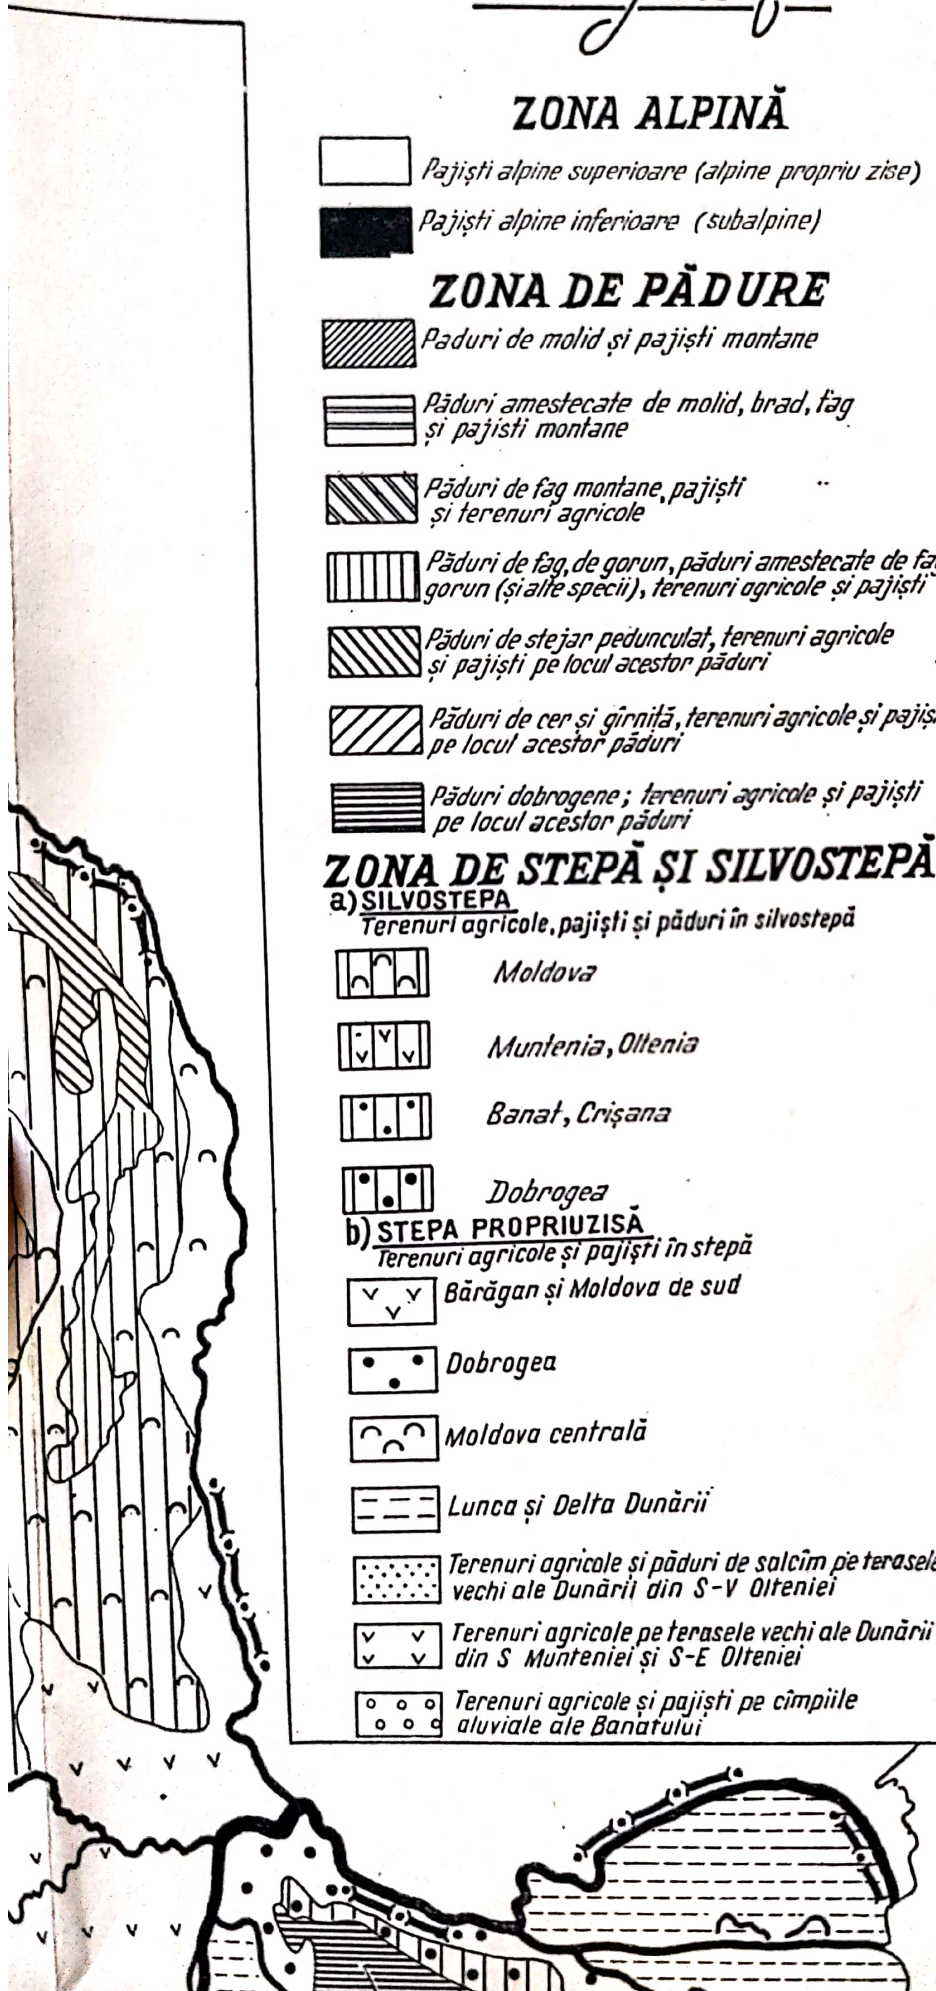 ZONA ALPINĂ
Pajiști alpine superioare (alpine propriu zise)
Pajiști alpine inferioare (subalpine)
ZONA DE PĂDURE
Paduri de molid și pajiști montane
Păduri amestecate de molid, brad, fag
și pajisti montane
Păduri de fag montane, pajiști
și terenuri agricole
Păduri de fag, de gorun, păduri amestecate de
gorun (și alte specii), terenuri agricole și pajiști
Păduri de stejar pedunculat, terenuri agricole
și pajiști pe locul acestor păduri
Păduri de cer și gîrniță, terenuri agricole și
pe locul acestor păduri
Păduri dobrogene; terenuri agricole și pajiști
pe locul acestor păduri
ZONA DE STEPĂ ȘI SILVOSTEPĂ
a) SILVOSTEPA
Terenuri agricole, pajiști și păduri în silvostepă
Moldova
Muntenia, Oltenia
Banat, Crișana
Dobrogea
b) STEPA PROPRIUZISĂ
Terenuri agricole și pajiști în stepă
Bărăgan și Moldova de sud
Dobrogea
Moldova centrală
Lunca și Delta Dunării
Terenuri agricole și păduri de salcîm pe terasele
vechi ale Dunării din S-V Olteniei
Terenuri agricole pe terasele vechi ale Dunării
din S Munteniei și S-E Olteniei
Terenuri agricole și pajiști pe cîmpiile
aluviale ale Banatului